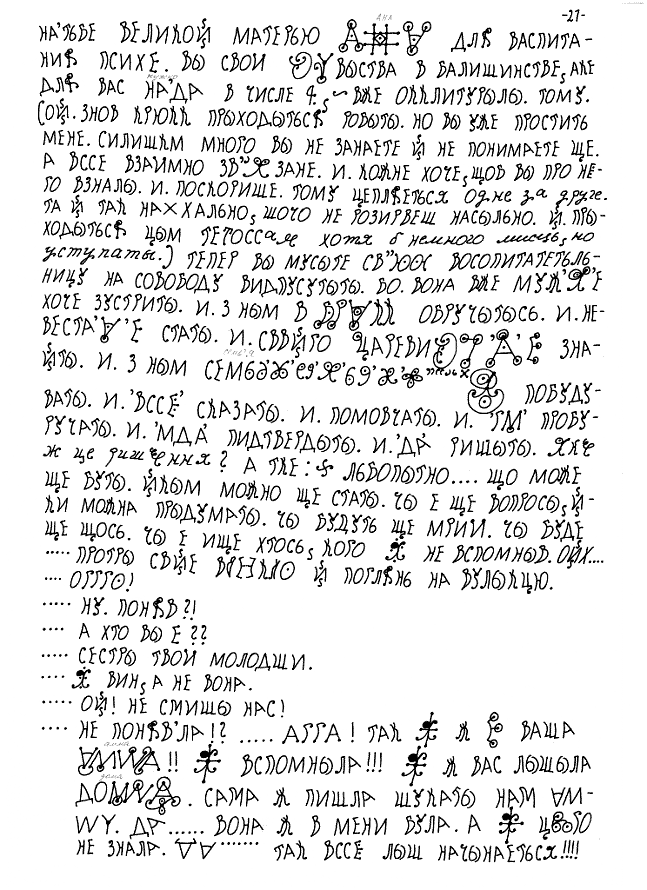 -27-
НА'ТЬВЕ ВЕЛИКОЙ МАТЕРЬЮ ДЛЯ ВАСПИТА-
НИЯ ПСИХЕ. ВЫ СВОИ В БАЛИШИНСТВЕ, АЛЕ
ДЛЯ ВАС НА'ДА В ЧИСЛЕ 4. ВЖЕ ОККЛИТУРЫЛЫ. ТОМУ.
(ОЙ. ЗНОВ КРЮКК ПРЫХОДЫТЬСЯ РОБЫТЫ. НО ВЫ УЖЕ ПРОСТИТЬ
МЕНЕ. СИЛИШКМ МНОГО ВЫ НЕ ЗНАЕТЕ Й НЕ ПОНИМАЕТЕ ЩЕ.
А ВССЕ ВЗАИМНО ЗВ"Я ЗАНЕ. И. КОЖНЕ ХОЧЕ, ЩОБ ВЫ ПРО НЕ-
ГО ВЗНАЛЫ. И. ПОСКОРИШЕ. ТОМУ ЦЕПЛЯЕТЬСЯ одне за друге.
ТА Й ТАК НАХХАЛЬНО, ШОЧО НЕ РОЗИРВЕШ НАСЫЛЬНО. Й. ПРЫ-
ХОДЫТЬСЯ ЦЫМ ТЕТОССАМ хотя б немного мисць, но
уступаты.) ТЕПЕР ВЫ МУСЫТЕ СВ"ЮЮ ВОСОПИТАТЕТЬЛЬ-
НИЦУ НА СОВОБОДУ ВИДПУСУТЫТЫ. БО. ВОНА ВЖЕ МУЖ'Я'Е
ХОЧЕ ЗУСТРИТЫ. И. З НЫМ В ОБРУЧЫТЫСЬ. И. НЕ-
ВЕСТА'У'Е СТАТЫ. И. СВВЙГО ЦАРЕВИ ЗНА-
ЙТЫ. И. З НЫМ ПОБУДУ-
ВАТЫ. И. 'ВССЕ' СКАЗАТЫ. И. ПОМОВЧАТЫ. И. 'ГМ' ПРОБУ-
РУЧАТЫ. И. 'МДА' ПИДТВЕРДЫТЫ. И. 'ДА' РИШЫТЫ. ЯКЕ
ж це ришення? А ТКЕ: ЛЬБОПЫТНО.... ЩО МОЖЕ
ЩЕ БУТЫ. ЙКЫМ МОЖНО ЩЕ СТАТЫ. ЧЫ Е ЩЕ ВОПРОСЫ, Й-
КИ МОЖНА ПРОДУМАТЫ. ЧЫ БУДУТЬ ЩЕ МРИИ. ЧЫ БУДЕ
ЩЕ ЩОСЬ. ЧЫ Е ИЩЕ ХТОСЬ, КОГО Я НЕ ВСПОМНЫВ. ОЙХ....
..... ПРОТРЫ СВЙЕ Й ПОГЛЯНЬ НА ВУЛЫКЦЮ.
.... ОГГГО!
..... НУ. ПОНЯВ?!
.... А ХТО ВЫ Е??
..... СЕСТРЫ ТВОИ МОЛОДШИ.
.... Я ВИН, А НЕ ВОНА.
..... ОЙ! НЕ СМИШЫ НАС!
.... НЕ ПОНЯВ'ЛА!? ..... АГГА! ТАК Я Ж Е ВАША
!! Я ВСПОМНЫЛА!!! Я Ж ВАС ЛЫШЫЛА
. САМА Ж ПИШЛА ШУКАТЫ НАМ
ДА...... ВОНА Ж В МЕНИ БУЛА. А Я ЦЬОГО
НЕ ЗНАЛА. ....... ТАК ВССЕ ЛЫШ НАЧЫНАЕТЬСЯ!!!!